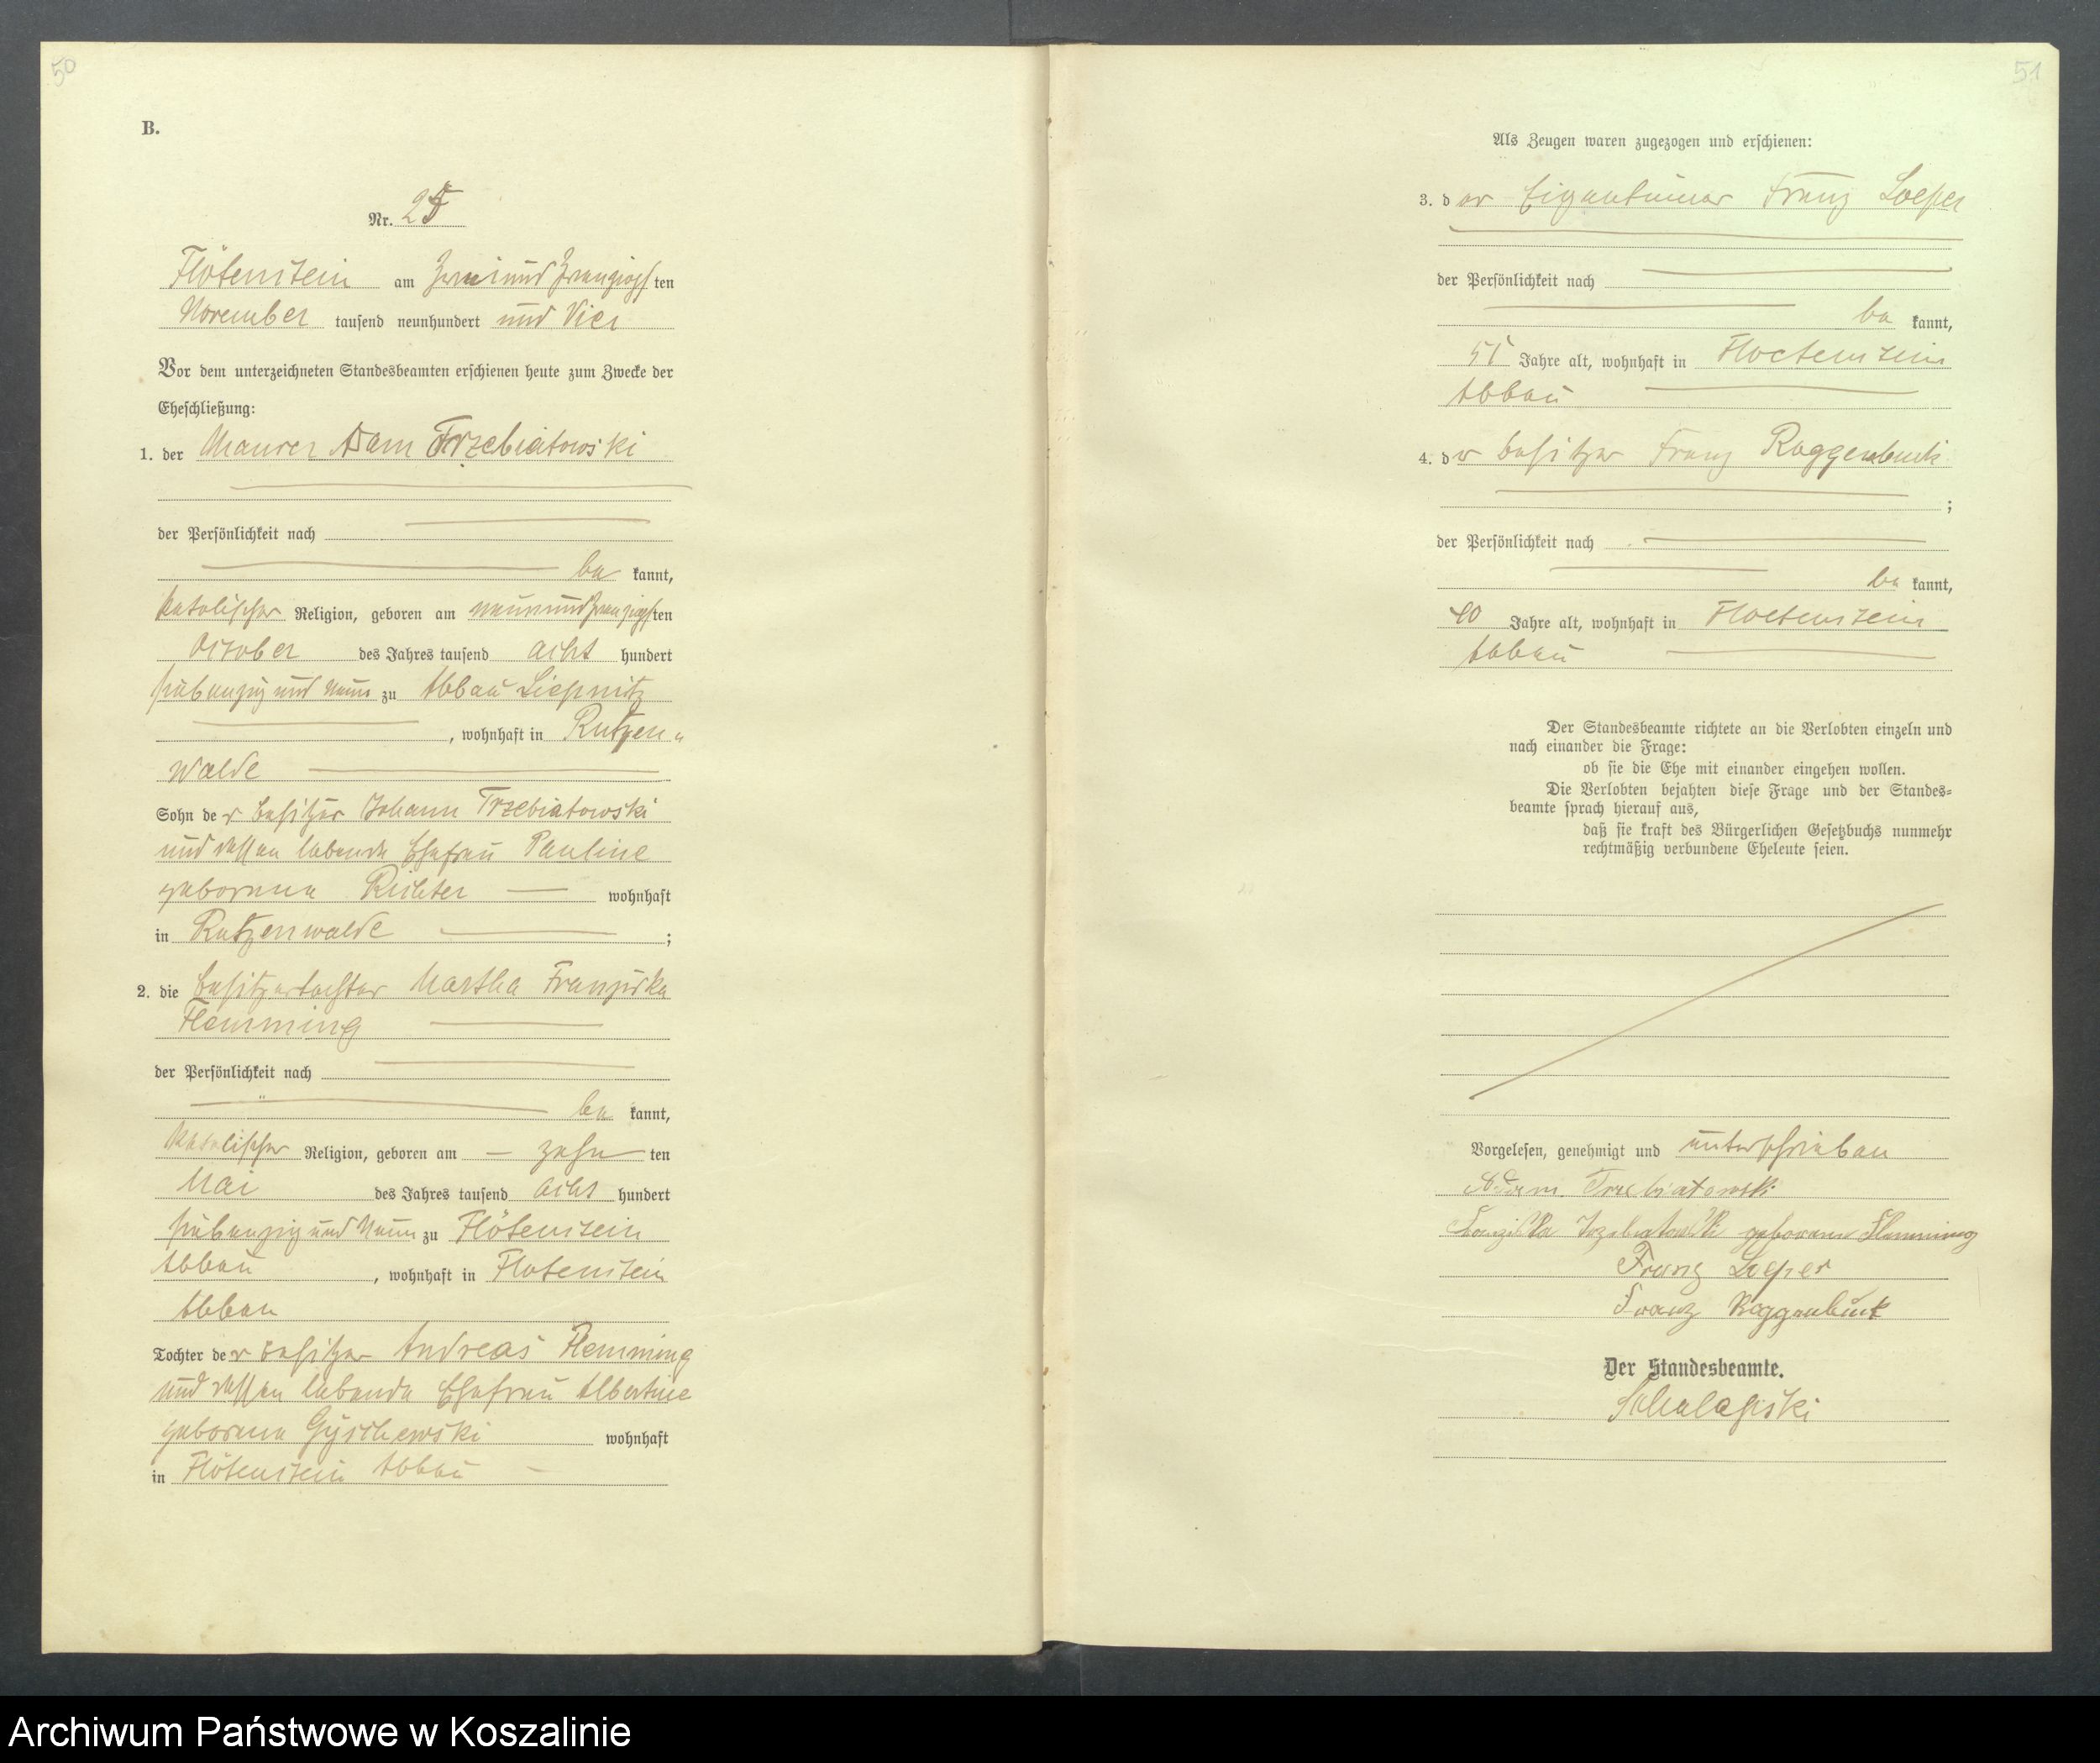 50
B.
Nr. 25
Flötenstein am Zweiundzwanzigsten
November tausend neunhundert und Vier
Vor dem unterzeichneten Standesbeamten erschienen heute zum Zwecke der
Eheschließung:
1. der Maurer Adam Trzebiatowski
der Persönlichkeit nach
be kannt,
katolischer Religion, geboren am neunundzwanzigsten
October des Jahres tausend acht hundert
siebenzig und Neun zu Abbau Liepnitz
, wohnhaft in Rutzen„
walde
Sohn der Besitzer Johann Trzebiatowski
und dessen lebende Ehefrau Pauline
geborene Richter wohnhaft
in Rutzenwalde ;
2. die Besitzertochter Martha Franziska
Flemming
der Persönlichkeit nach
be kannt,
katolischer Religion, geboren am – zehn ten
Mai des Jahres tausend acht hundert
siebenzig und Neun zu Flötenstein
Abbau , wohnhaft in Flotenstein
Abbau
Tochter der Besitzer Andreas Flemming
und dessen lebende Ehefrau Albertine
geborene Gyschewski wohnhaft
in Flötenstein Abbau –
51
Als Zeugen waren zugezogen und erschienen:
3. der Eigentümer Franz Loeper
der Persönlichkeit nach
be kannt,
51 Jahre alt, wohnhaft in Floetenstein
Abbau
4. der Besitzer Franz Roggenbuck
;
der Persönlichkeit nach
be kannt,
40 Jahre alt, wohnhaft in Floetenstein
Abbau
Der Standesbeamte richtete an die Verlobten einzeln und
nach einander die Frage:
ob sie die Ehe mit einander eingehen wollen.
Die Verlobten bejahten diese Frage und der Standes=
beamte sprach hierauf aus,
daß sie kraft des Bürgerlichen Gesetzbuchs nunmehr
rechtmäßig verbundene Eheleute seien.
Vorgelesen, genehmigt und unterschrieben
Adam Trzebiatowski
Franziska Trzebiatowski geborene Flemming
Franz Loeper
Franz Roggenbuck
Der Standesbeamte.
Archiwum Państwowe w Koszalinie